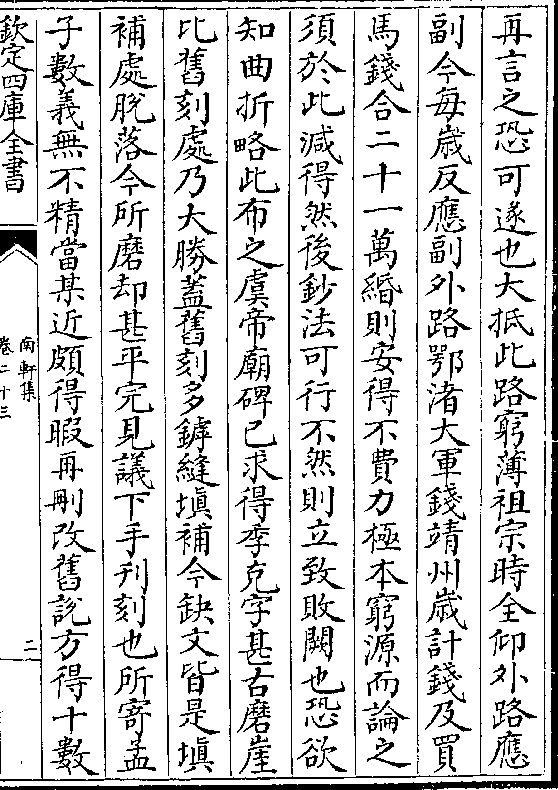 再言之恐可遂也大抵此路窮薄祖宗時全仰外路應
副今每歳反應副外路鄂渚大軍錢靖州歳計錢及買
馬錢合二十一萬緡則安得不費力極本窮源而論之
須於此減得然後鈔法可行不然則立致敗闕也恐欲
知曲折略此布之虞帝廟碑已求得李克字甚古磨崖
比舊刻處乃大勝蓋舊刻多鏬縫塡補今缺文皆是塡
補處脫落今所磨却甚平完見議下手刋刻也所寄孟
子數義無不精當某近頗得暇再刪改舊說方得十數
欽定四庫全書
南軒集
卷二十三
二